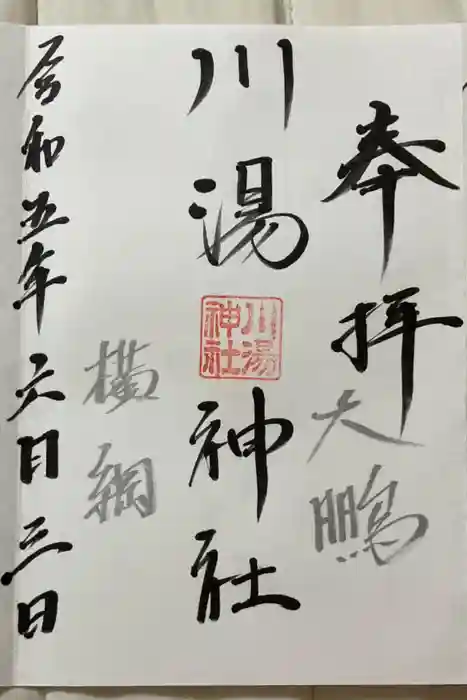 奉拝
大鵬
川湯神社
川湯
神社
横綱
令和五年六月三日